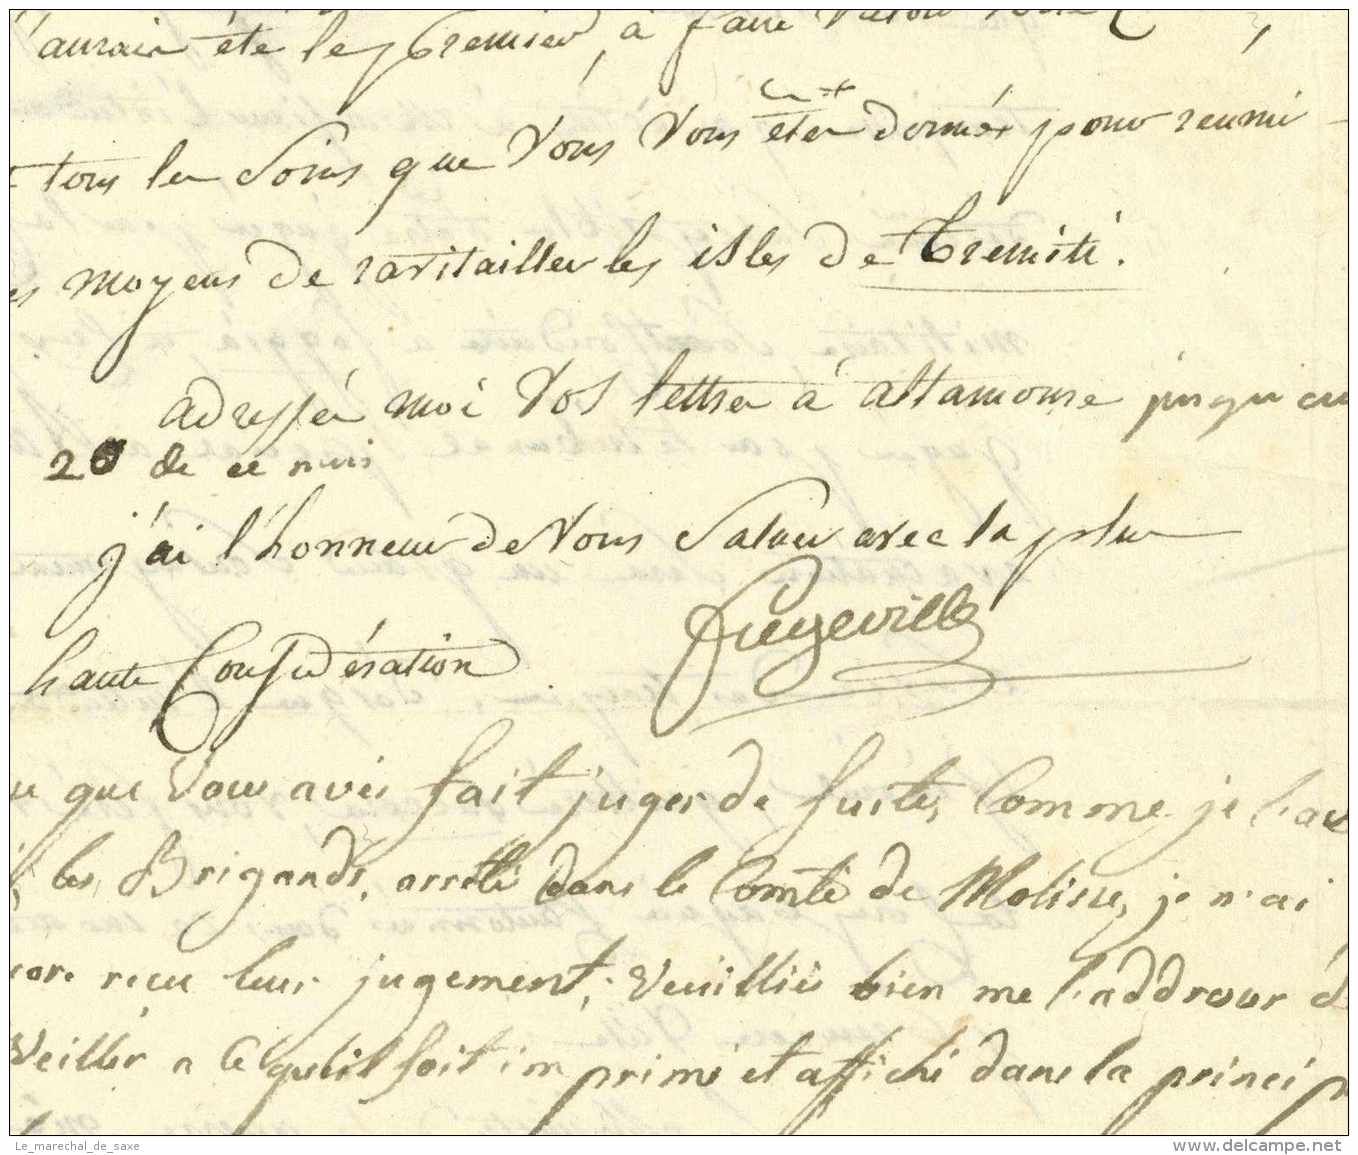 j'aurais été le premier, à faire valoir votre
tous les soins que Vous Vous étes donnés pour reunir
es moyens de ravitailler les isles de Tremiti.
adressés moi Vos lettres à altamoure jusqu'au
20 de ce mois
j'ai l'honneur de Vous Saluer avec la plus
haute Considération
Fregeville
que Vous avés fait juger de suite, Comme je l'av
les Brigands, arrêté dans le Comté de Molisse, je n'ai
core recu leur jugement, Veuilliés bien me l'addresser
Veiller a ce qu'il soit imprimé et affiché dans la princip
Le_marechal_de_saxe
www.delcampe.net